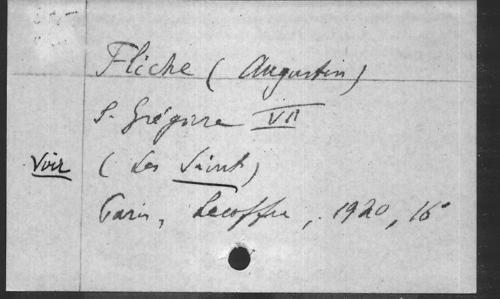 Fliche (Augustin)
S. Grégoire VII
Voir (Les Saints)
Paris, Lecoffre, 1920, 16°